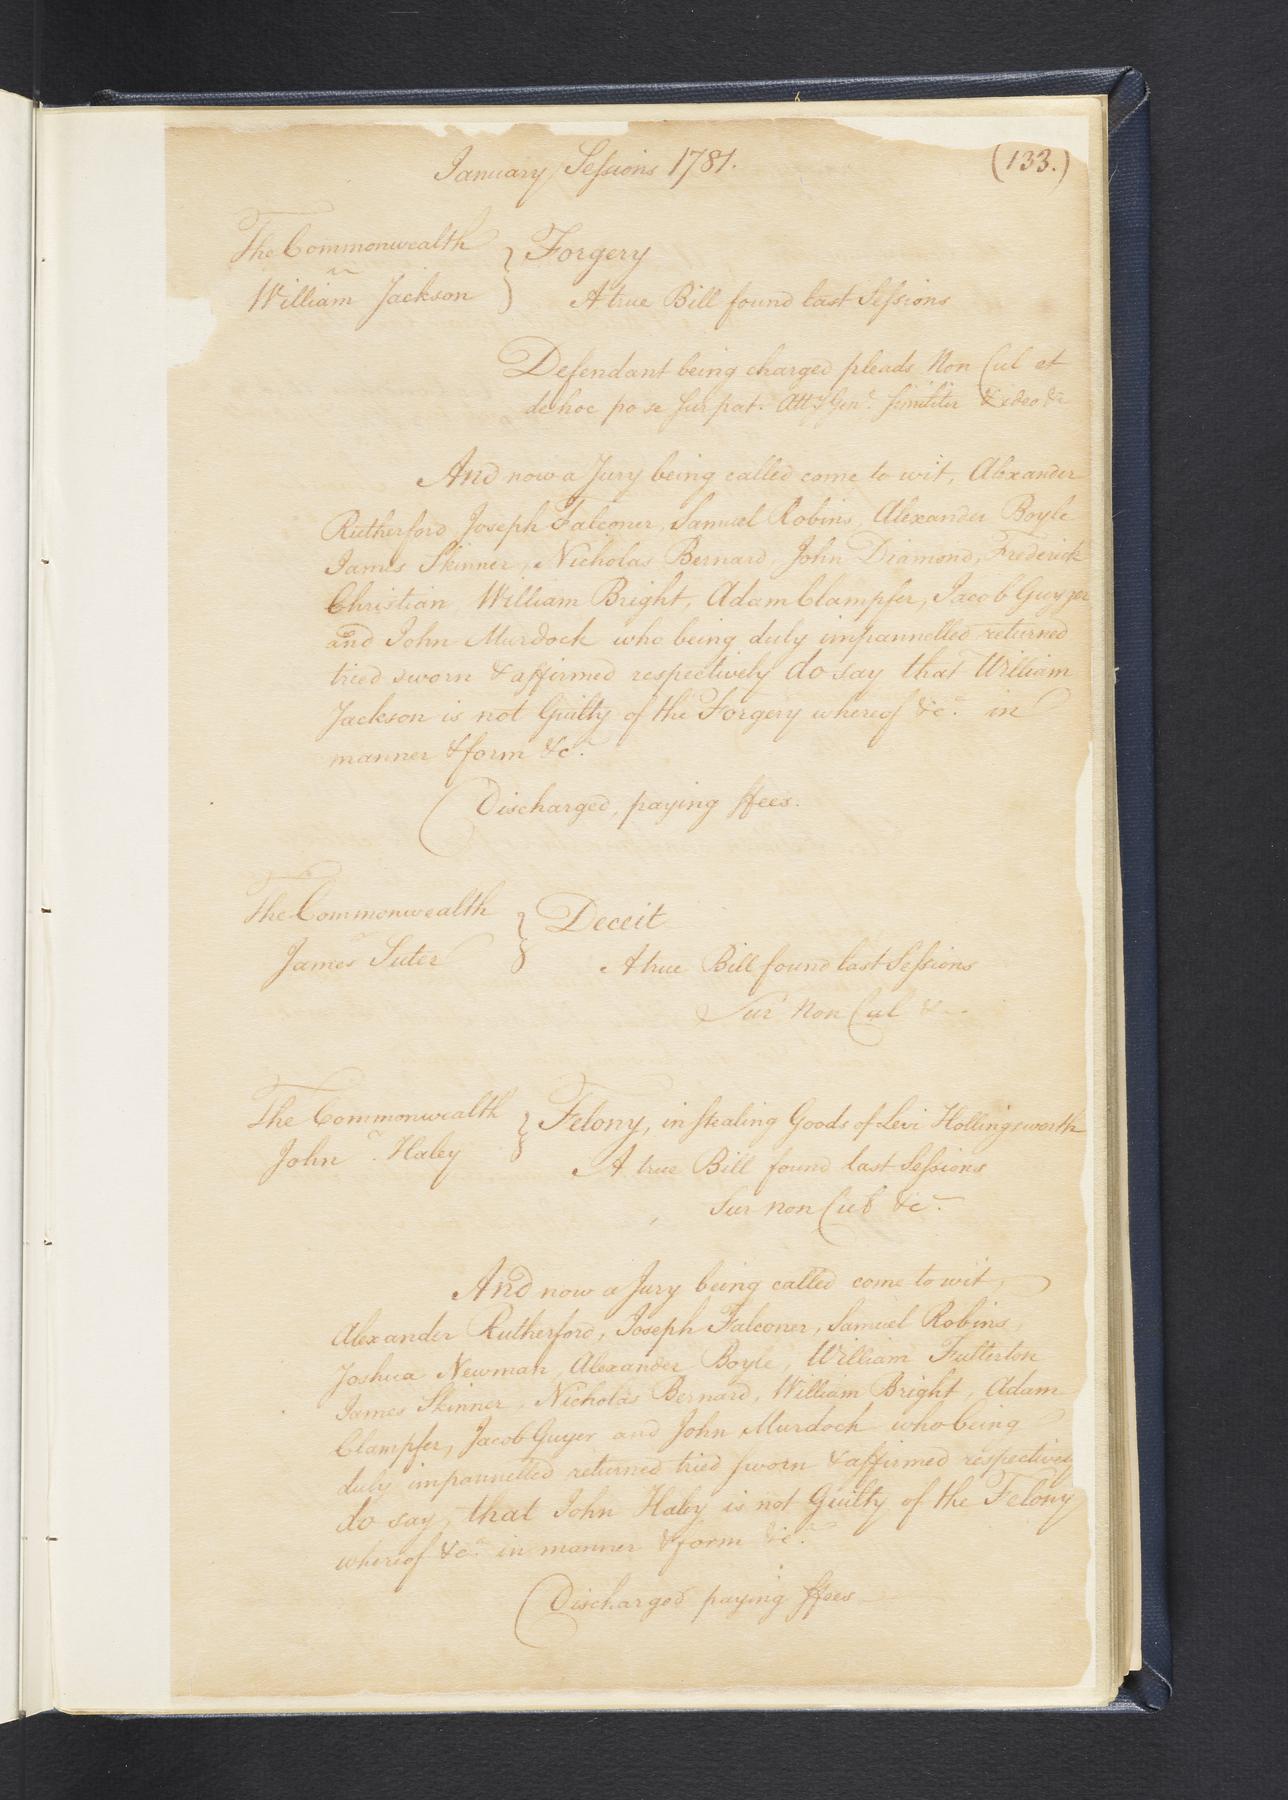 January Sessions 1781.
(133.)
The Commonwealth } Forgery
vs
William Jackson } A true Bill found last Sessions
Defendant being charged pleads Non Cul et
de hoc po se sur pat. Atty Genl. similiter & ideo &c
And now a Jury being called come to wit, Alexander
Rutherford Joseph Falconer, Samuel Robins, Alexander Boyle
James Skinner, Nicholas Bernard, John Diamond, Frederick
Christian William Bright, Adam Clampfer, Jacob Guyger
and John Murdock who being duly impannelled returned
tried sworn & affirmed respectively do say that William
Jackson is not Guilty of the Forgery whereof &c. in
manner & form &c.
Discharged, paying ffees.
The Commonwealth } Deceit
vs
James Suter A true Bill found last Sessions
Sur Non Cul &c
The Commonwealth } Felony, in stealing Goods of Levi Hollingsworth
vs
John Haley A true Bill found last Sessions
Sur non Cul &c.
And now a Jury being called come to wit,
Alexander Rutherford, Joseph Falconer, Samuel Robins,
Joshua Newman, Alexander Boyle, William Fullerton
James Skinner, Nicholas Bernard, William Bright, Adam
Clampfer, Jacob Guyer and John Murdoch who being
duly impannelled returned tried sworn & affirmed respectively
do say, that John Haley is not Guilty of the Felony
whereof &c. in manner & form &c.
Discharged paying ffees